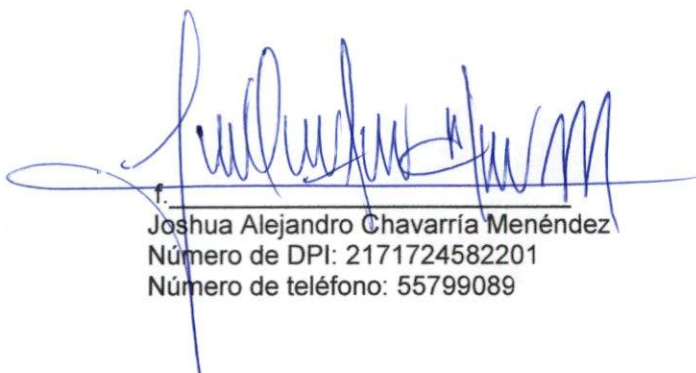 f.
Joshua Alejandro Chavarría Menéndez
Número de DPI: 2171724582201
Número de teléfono: 55799089